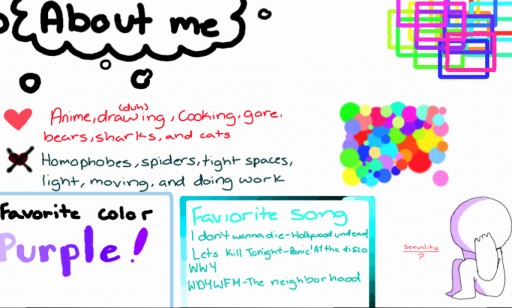 About me
(duh)
Anime, drawing, Cooking, gore,
bears, sharks, and cats
Homophobes, spiders, tight spaces,
light, moving, and doing work
Favorite color
Purple!
Faviorite Song
I don't wanna die-Hollywood undead
Lets kill Tonight-Panic! At the disco
WWY
WDYWFM-The neighborhood
Sexuality
?